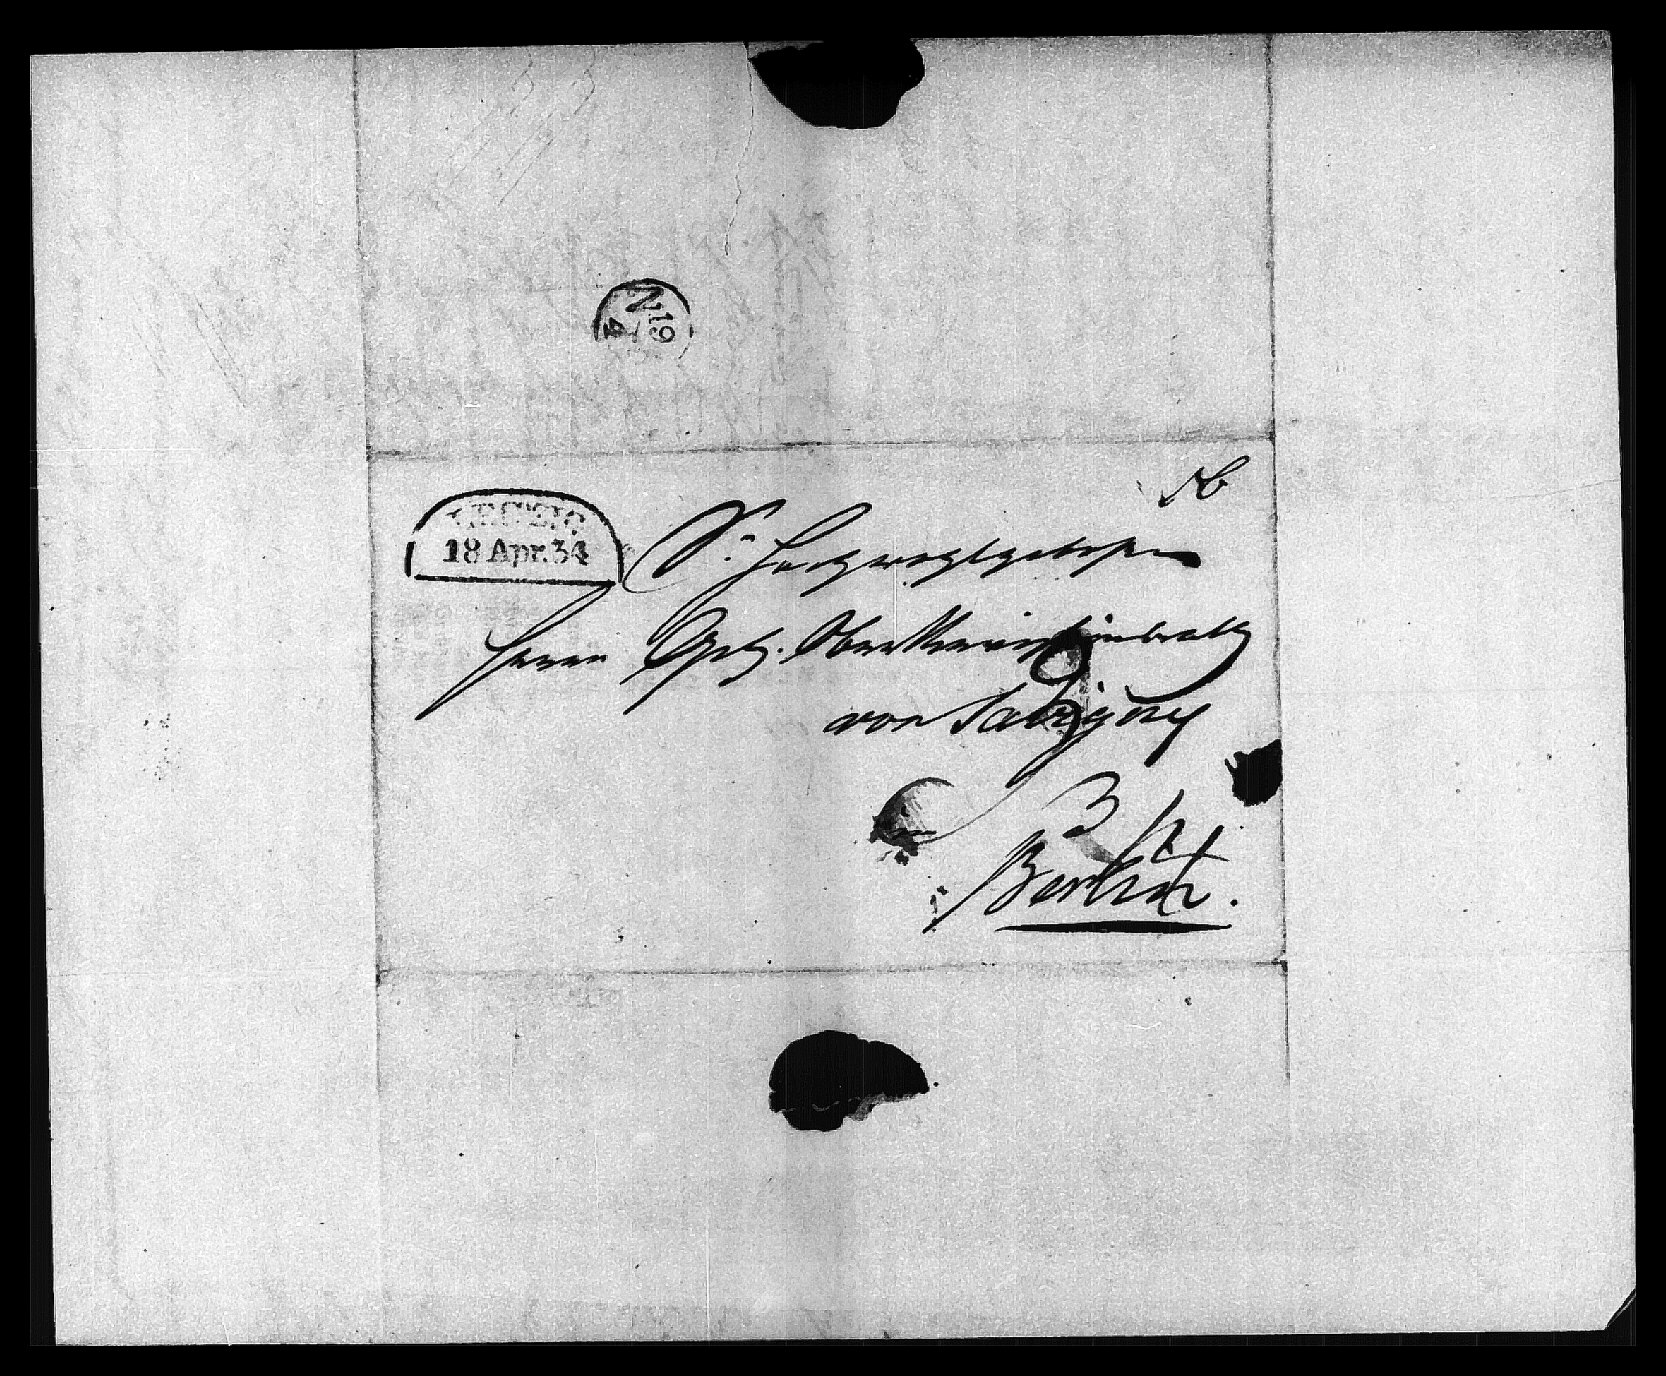 N 19
4
LEIPZIG
18 Apr. 34
Sr. Hochwohlgeboren
Herrn Geh. Oberrevisionsrath
von Savigny
3
Berlin.